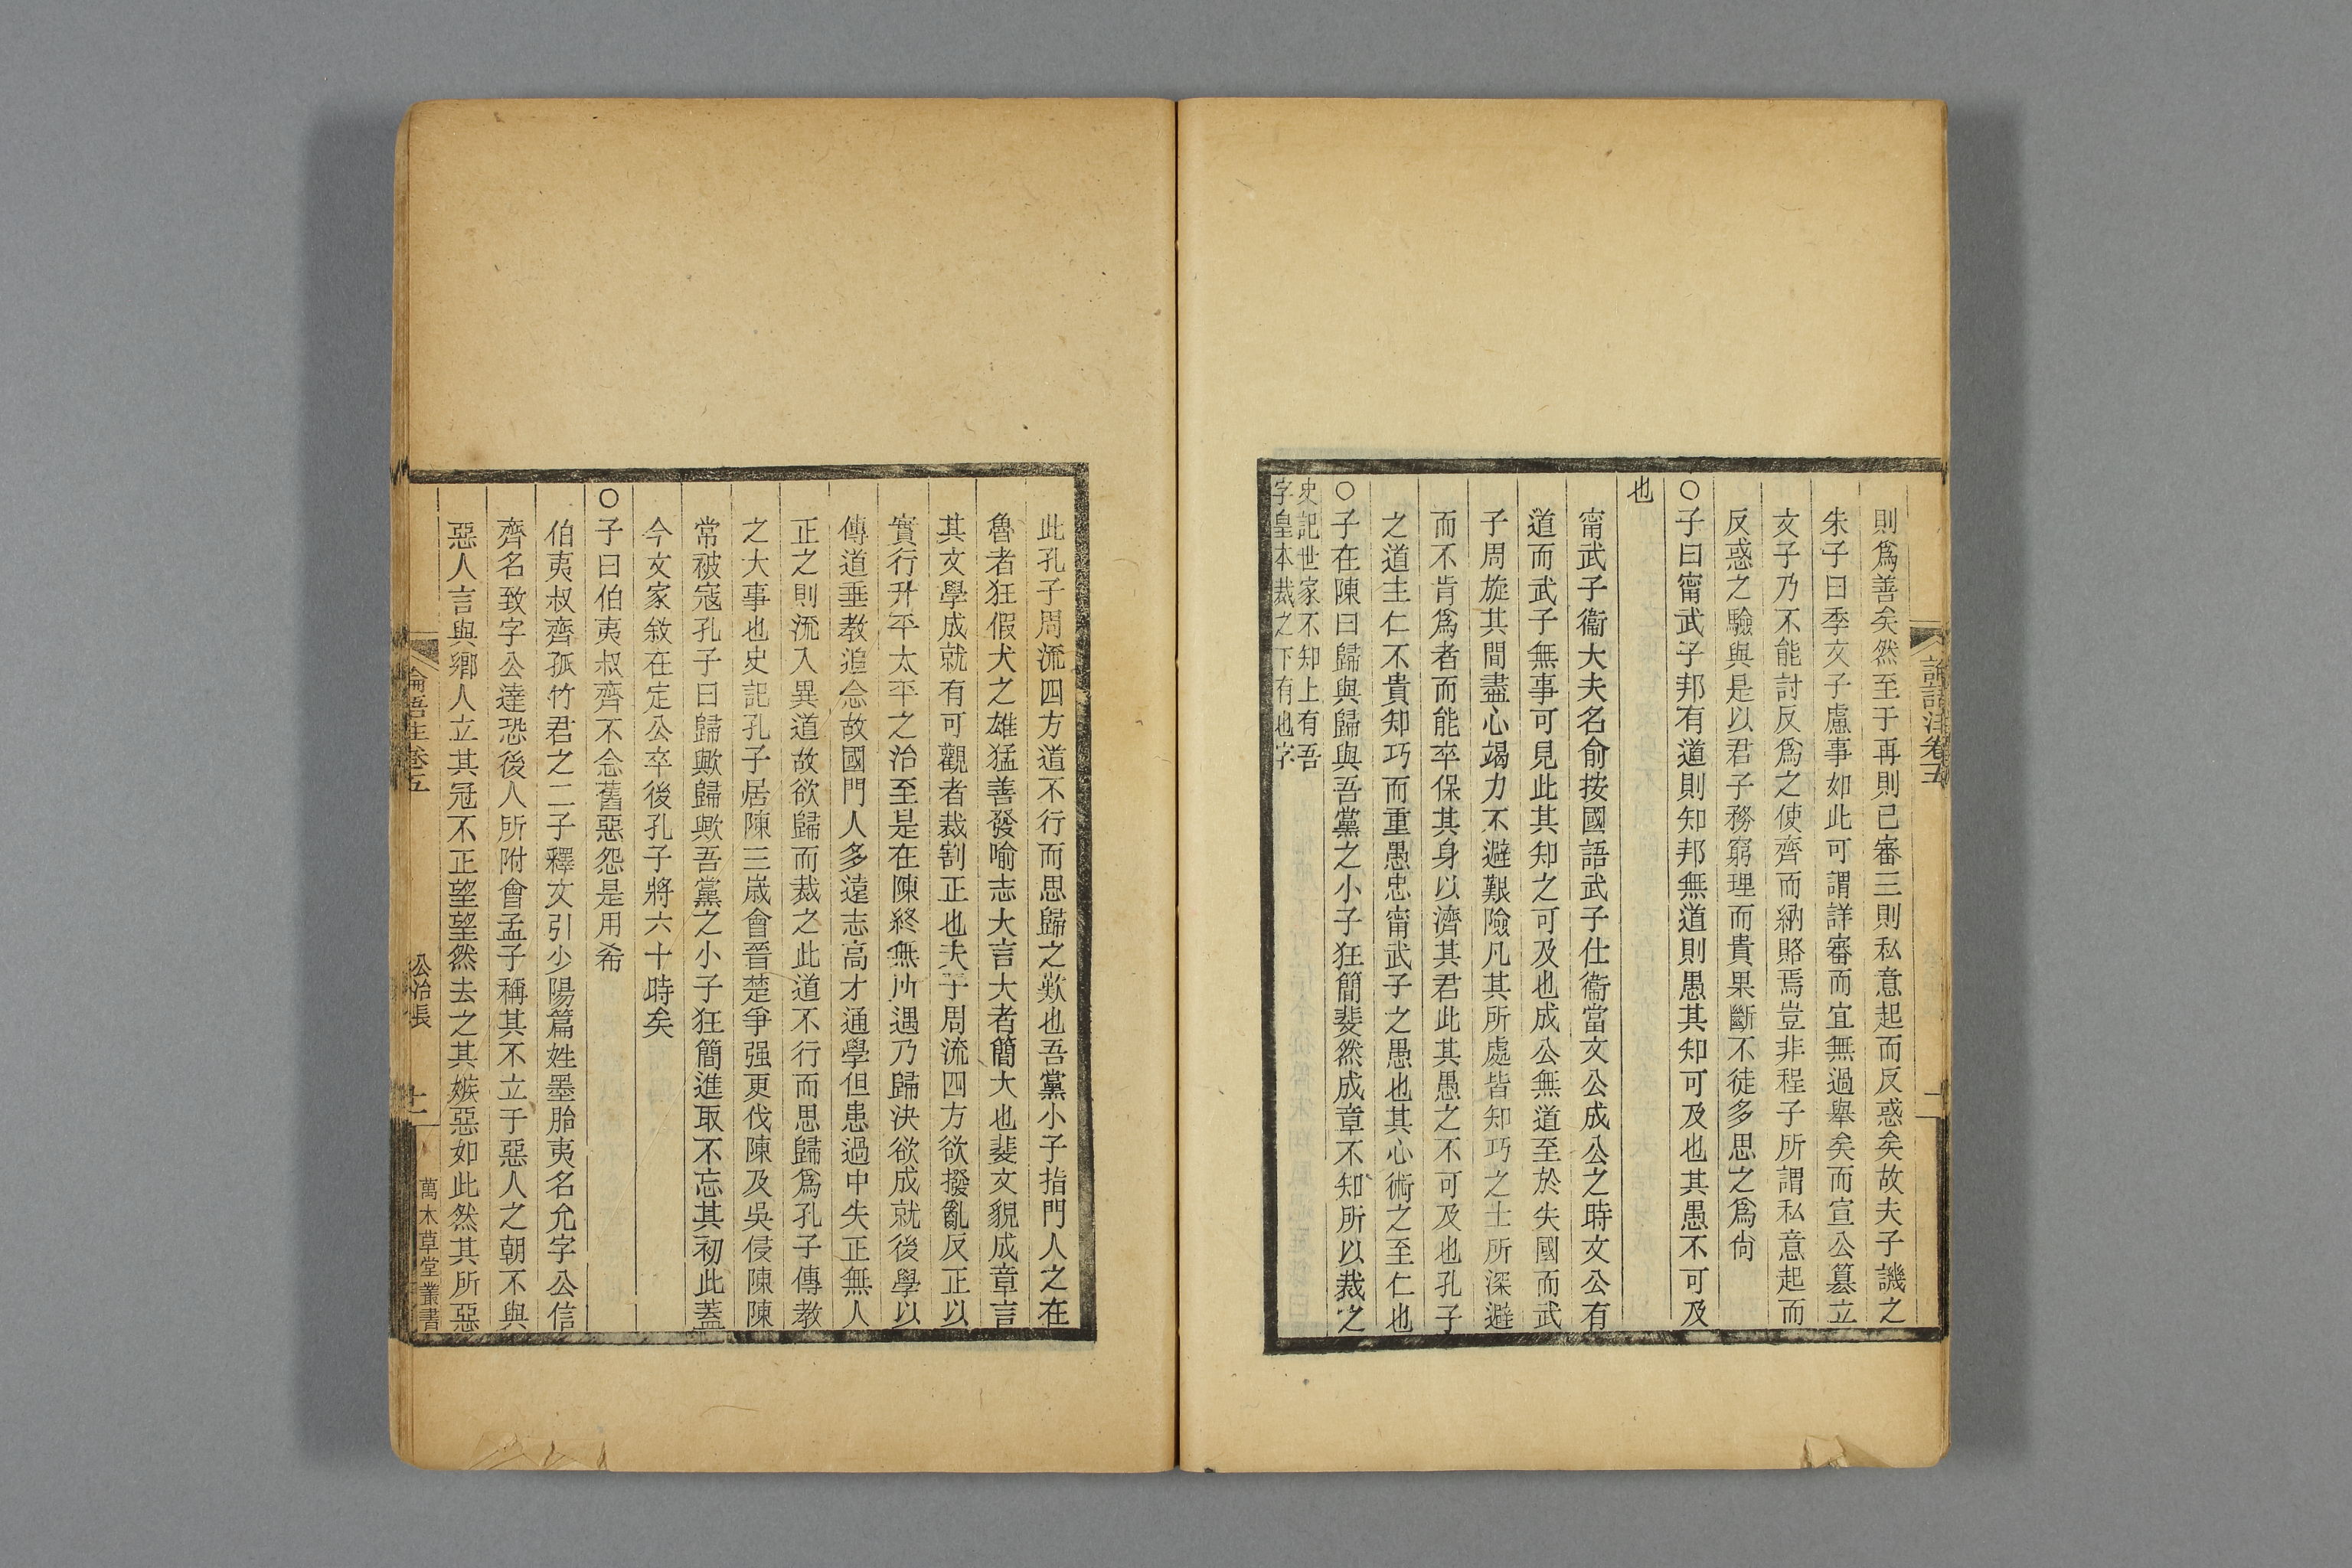 論語注卷五
則爲善矣然至于再則已審三則私意起而反惑矣故夫子譏之
朱子曰季文子慮事如此可謂詳審而宜無過舉矣而宣公篡立
文子乃不能討反爲之使齊而納賂焉豈非程子所謂私意起而
反惑之驗與是以君子務窮理而貴果斷不徒多思之爲尙
○子曰甯武子邦有道則知邦無道則愚其知可及也其愚不可及
也
甯武子衞大夫名俞按國語武子仕衞當文公成公之時文公有
道而武子無事可見此其知之可及也成公無道至於失國而武
子周旋其間盡心竭力不避艱險凡其所處皆知巧之士所深避
而不肯爲者而能卒保其身以濟其君此其愚之不可及也孔子
之道主仁不貴知巧而重愚忠甯武子之愚也其心術之至仁也
○子在陳曰歸與歸與吾黨之小子狂簡斐然成章不知所以裁之
史記世家不知上有吾
字皇本裁之下有也字
此孔子周流四方道不行而思歸之歎也吾黨小子指門人之在
魯者狂假犬之雄猛善發喻志大言大者簡大也斐文貌成章言
其文學成就有可觀者裁割正也夫子周流四方欲撥亂反正以
實行升平太平之治至是在陳終無所遇乃歸決欲成就後學以
傳道垂教追念故國門人多遠志高才通學但患過中失正無人
正之則流入異道故欲歸而裁之此道不行而思歸爲孔子傳教
之大事也史記孔子居陳三歲會晉楚爭强更伐陳及吳侵陳陳
常被寇孔子曰歸歟歸歟吾黨之小子狂簡進取不忘其初此蓋
今文家敘在定公卒後孔子將六十時矣
○子曰伯夷叔齊不念舊惡怨是用希
伯夷叔齊孤竹君之二子釋文引少陽篇姓墨胎夷名允字公信
齊名致字公達恐後人所附會孟子稱其不立于惡人之朝不與
惡人言與鄉人立其冠不正望望然去之其嫉惡如此然其所惡
論語注卷五
公冶長
十二
萬木草堂叢書